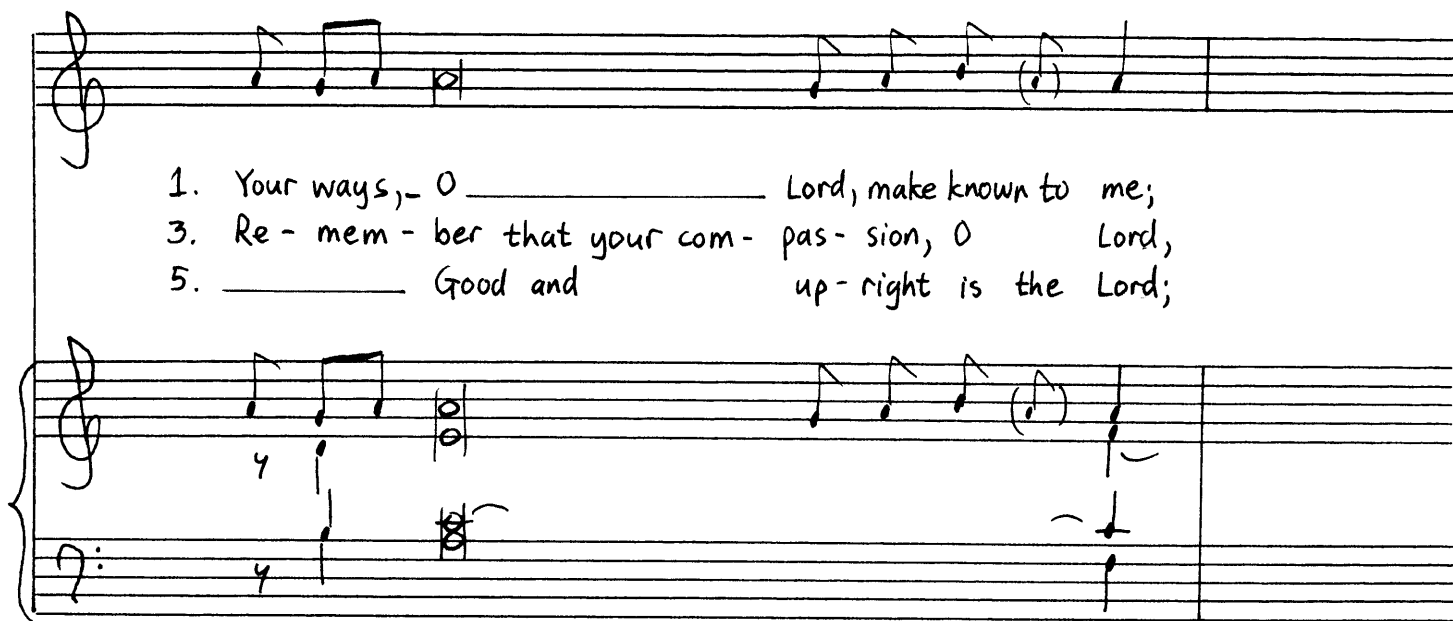 1. Your ways,_ O ____________ Lord, make known to me;
3. Re - mem - ber that your com - pas - sion, O Lord,
5. ________ Good and up - right is the Lord;